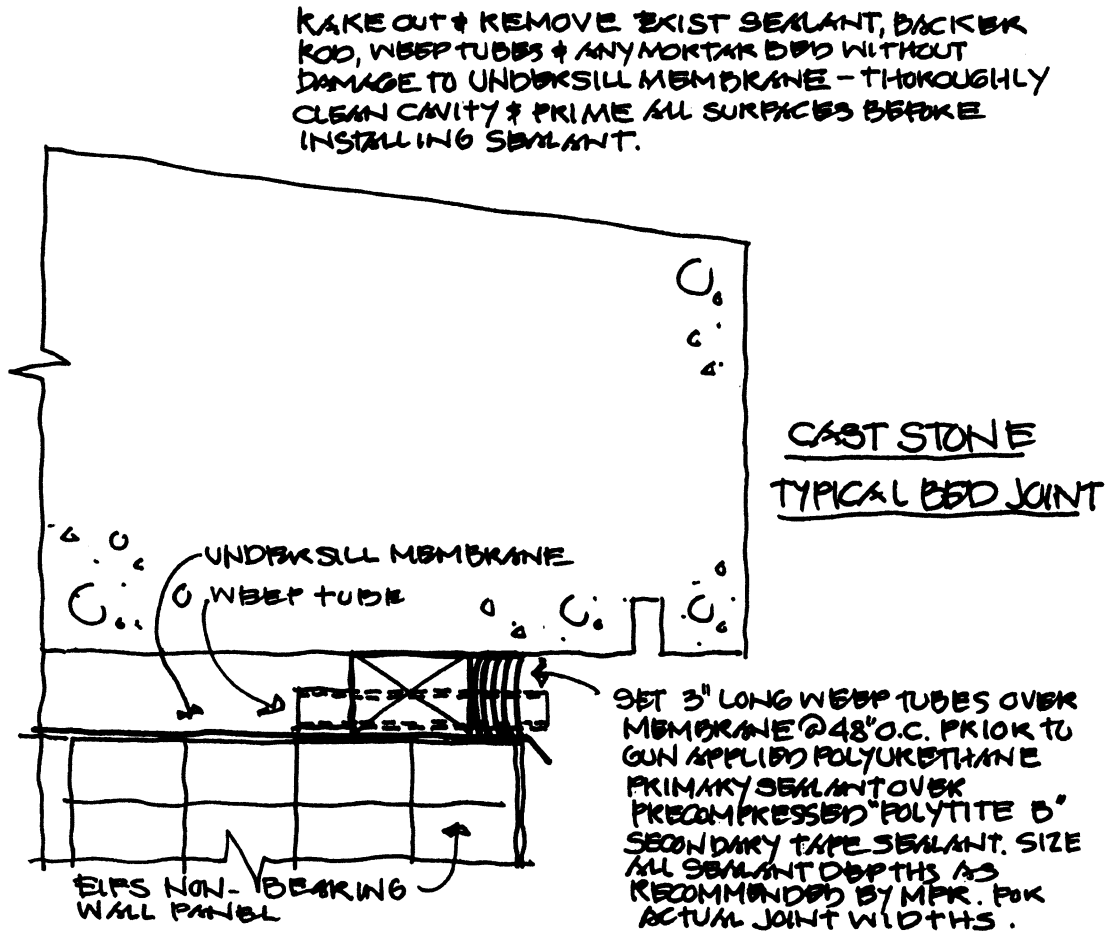 RAKE OUT & REMOVE EXIST SEALANT, BACKER
ROD, WEEP TUBES & ANY MORTAR BED WITHOUT
DAMAGE TO UNDERSILL MEMBRANE - THOROUGHLY
CLEAN CAVITY & PRIME ALL SURFACES BEFORE
INSTALLING SEALANT.
CAST STONE
TYPICAL BED JOINT
UNDERSILL MEMBRANE
WEEP TUBE
SET 3" LONG WEEP TUBES OVER
MEMBRANE @ 48" O.C. PRIOR TO
GUN APPLIED POLYURETHANE
PRIMARY SEALANT OVER
PRECOMPRESSED "POLYTITE B"
SECONDARY TAPE SEALANT. SIZE
ALL SEALANT DEPTHS AS
RECOMMENDED BY MFR. FOR
ACTUAL JOINT WIDTHS.
EIFS NON-BEARING
WALL PANEL